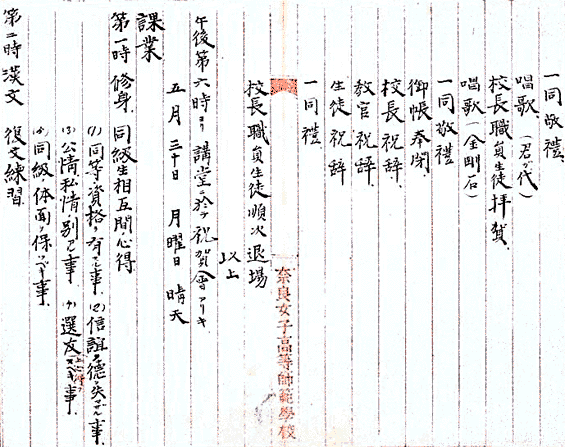 一同敬禮、
唱歌、（君ガ代）
校長職員生徒拝賀、
唱歌（金剛石）
一同敬禮
御帳奉閉、
校長祝辞、
教官祝辞、
生徒祝辞、
一同禮、
奈良女子高等師範學校
校長職員生徒順次退場
以上
午後第六時ヨリ講堂ニ於テ祝賀會アリキ
五月三十日 月曜日 晴天
課業
第一時 修身、同級生相互間心得
(1) 同等資格ヲ有スル事、(2) 信誼ノ德ヲ失ハザル事、
(3) 公情私情別ツ事、(4) 選友スベキ事
(5) 同級体面ヲ保ツベキ事、
第二時 漢文 復文練習